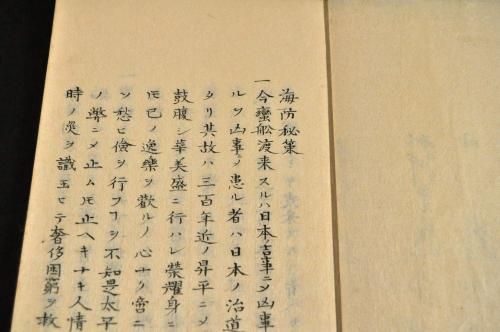 海防秘策
一今蠻舩渡来スルハ日本ノ吉事ニシテ凶事
ルヲ凶事ノ患ル者ハ日本ノ治道
タリ其故ハ三百年近ノ昇平ニメ
鼓腹シ華美盛ニ行ハレ榮耀身ニ
モ己ノ逸樂ヲ歡ルノ心ナク
ヲ愁ヒ儉ヲ行フヿヲ不知是太平
ノ弊ニメ止ムモ止ヘキナキ人情
時ノ災ヲ識玉ヒテ奢侈困窮ヲ救